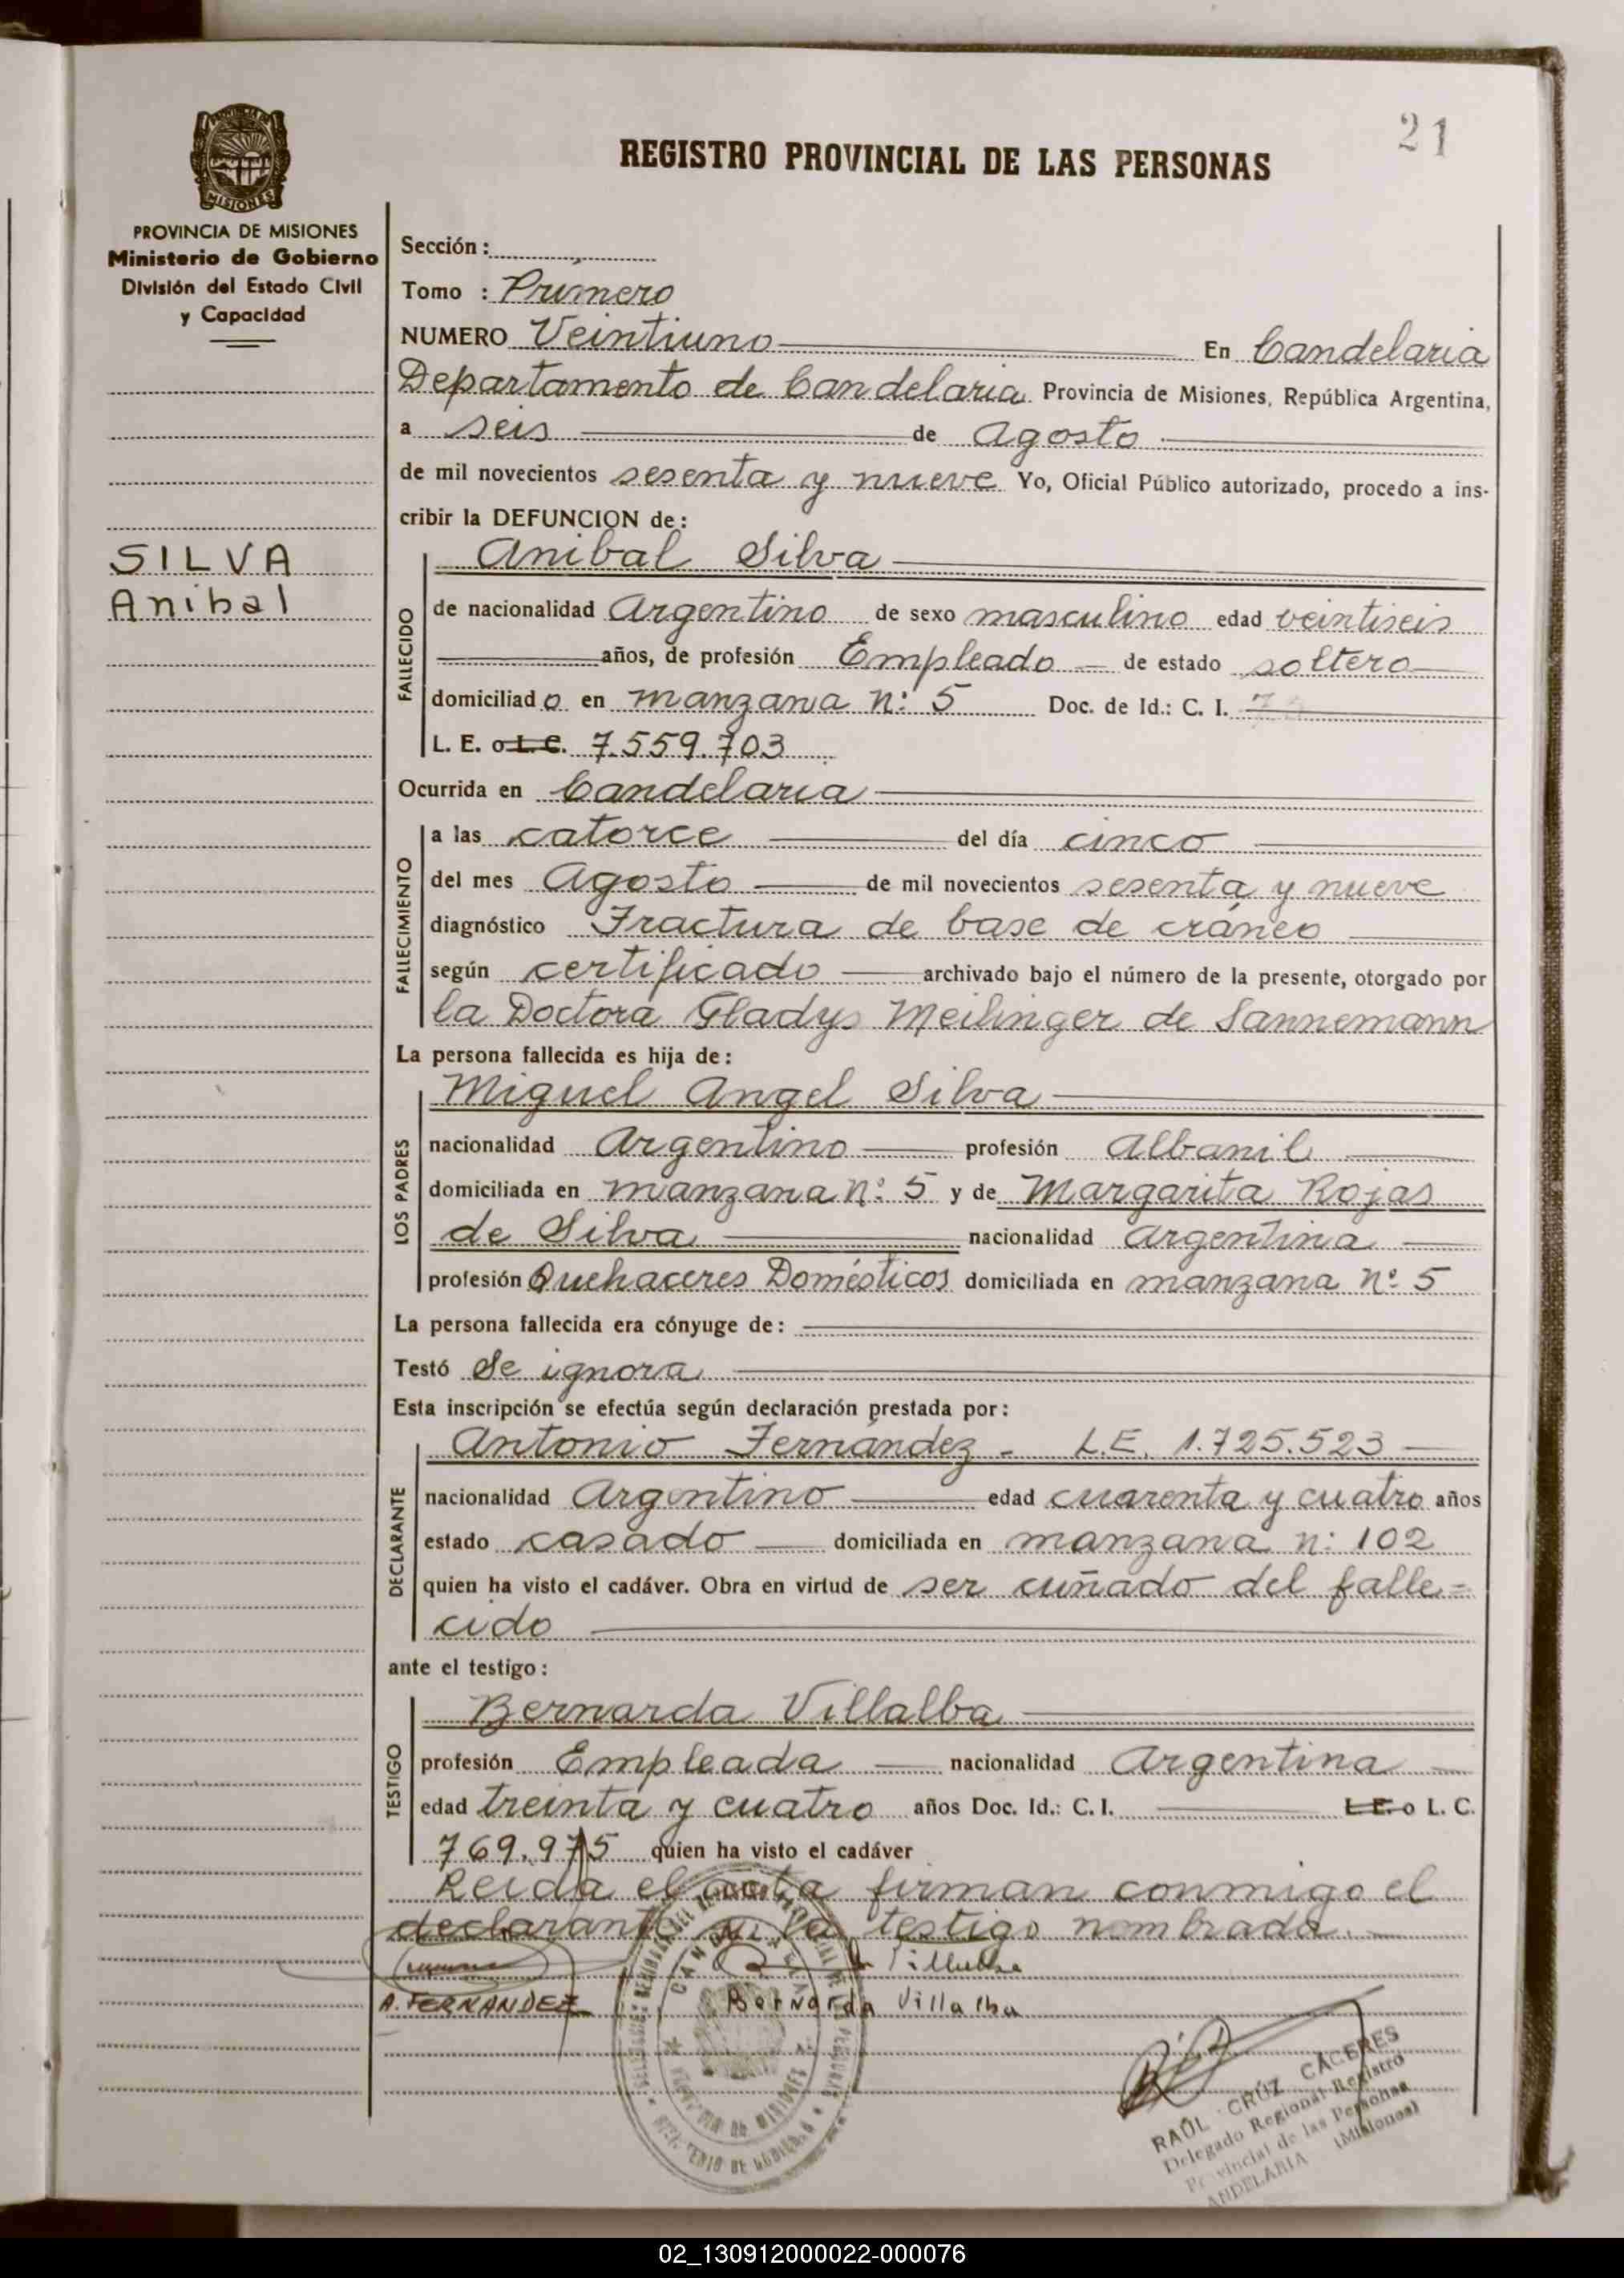 21
REGISTRO PROVINCIAL DE LAS PERSONAS
MISIONES
PROVINCIA DE MISIONES
Ministerio de Gobierno
División del Estado Civil
y Capacidad
SILVA
Anibal
Sección :
Tomo : Primero
NUMERO Veintiuno En Candelaria
Departamento de Candelaria Provincia de Misiones, República Argentina,
a seis de Agosto
de mil novecientos sesenta y nueve Yo, Oficial Público autorizado, procedo a ins-
cribir la DEFUNCION de :
FALLECIDO
Anibal Silva
de nacionalidad Argentino de sexo masculino edad veintiseis
años, de profesión Empleado de estado soltero
domiciliado en manzana n: 5 Doc. de Id.: C. I.
L. E. o L. C. 7.559.703
Ocurrida en Candelaria
FALLECIMIENTO
a las catorce del día cinco
del mes Agosto de mil novecientos sesenta y nueve
diagnóstico Fractura de base de cráneo
según certificado archivado bajo el número de la presente, otorgado por
la Doctora Gladys Meilinger de Sannemann
La persona fallecida es hija de :
LOS PADRES
Miguel Angel Silva
nacionalidad Argentino profesión Albanil
domiciliada en manzana n: 5 y de Margarita Rojas
de Silva nacionalidad Argentina
profesión Quehaceres Domésticos domiciliada en manzana nº 5
La persona fallecida era cónyuge de :
Testó Se ignora
Esta inscripción se efectúa según declaración prestada por :
DECLARANTE
Antonio Fernández - L.E. 1.725.523
nacionalidad Argentino edad cuarenta y cuatro años
estado casado domiciliada en manzana n: 102
quien ha visto el cadáver. Obra en virtud de ser cuñado del falle=
cido
ante el testigo :
TESTIGO
Bernarda Villalba
profesión Empleada nacionalidad Argentina
edad treinta y cuatro años Doc. Id.: C. I. L.E. o L. C.
769.975 quien ha visto el cadáver
Leida el acta firman conmigo el
declarante y la testigo nombrada.
A. FERNANDEZ
Bernarda Villalba
RAÚL CRÚZ CÁCERES
Delegado Regional Registro
Provincial de las Personas
CANDELARIA (Misiones)
02_130912000022-000076